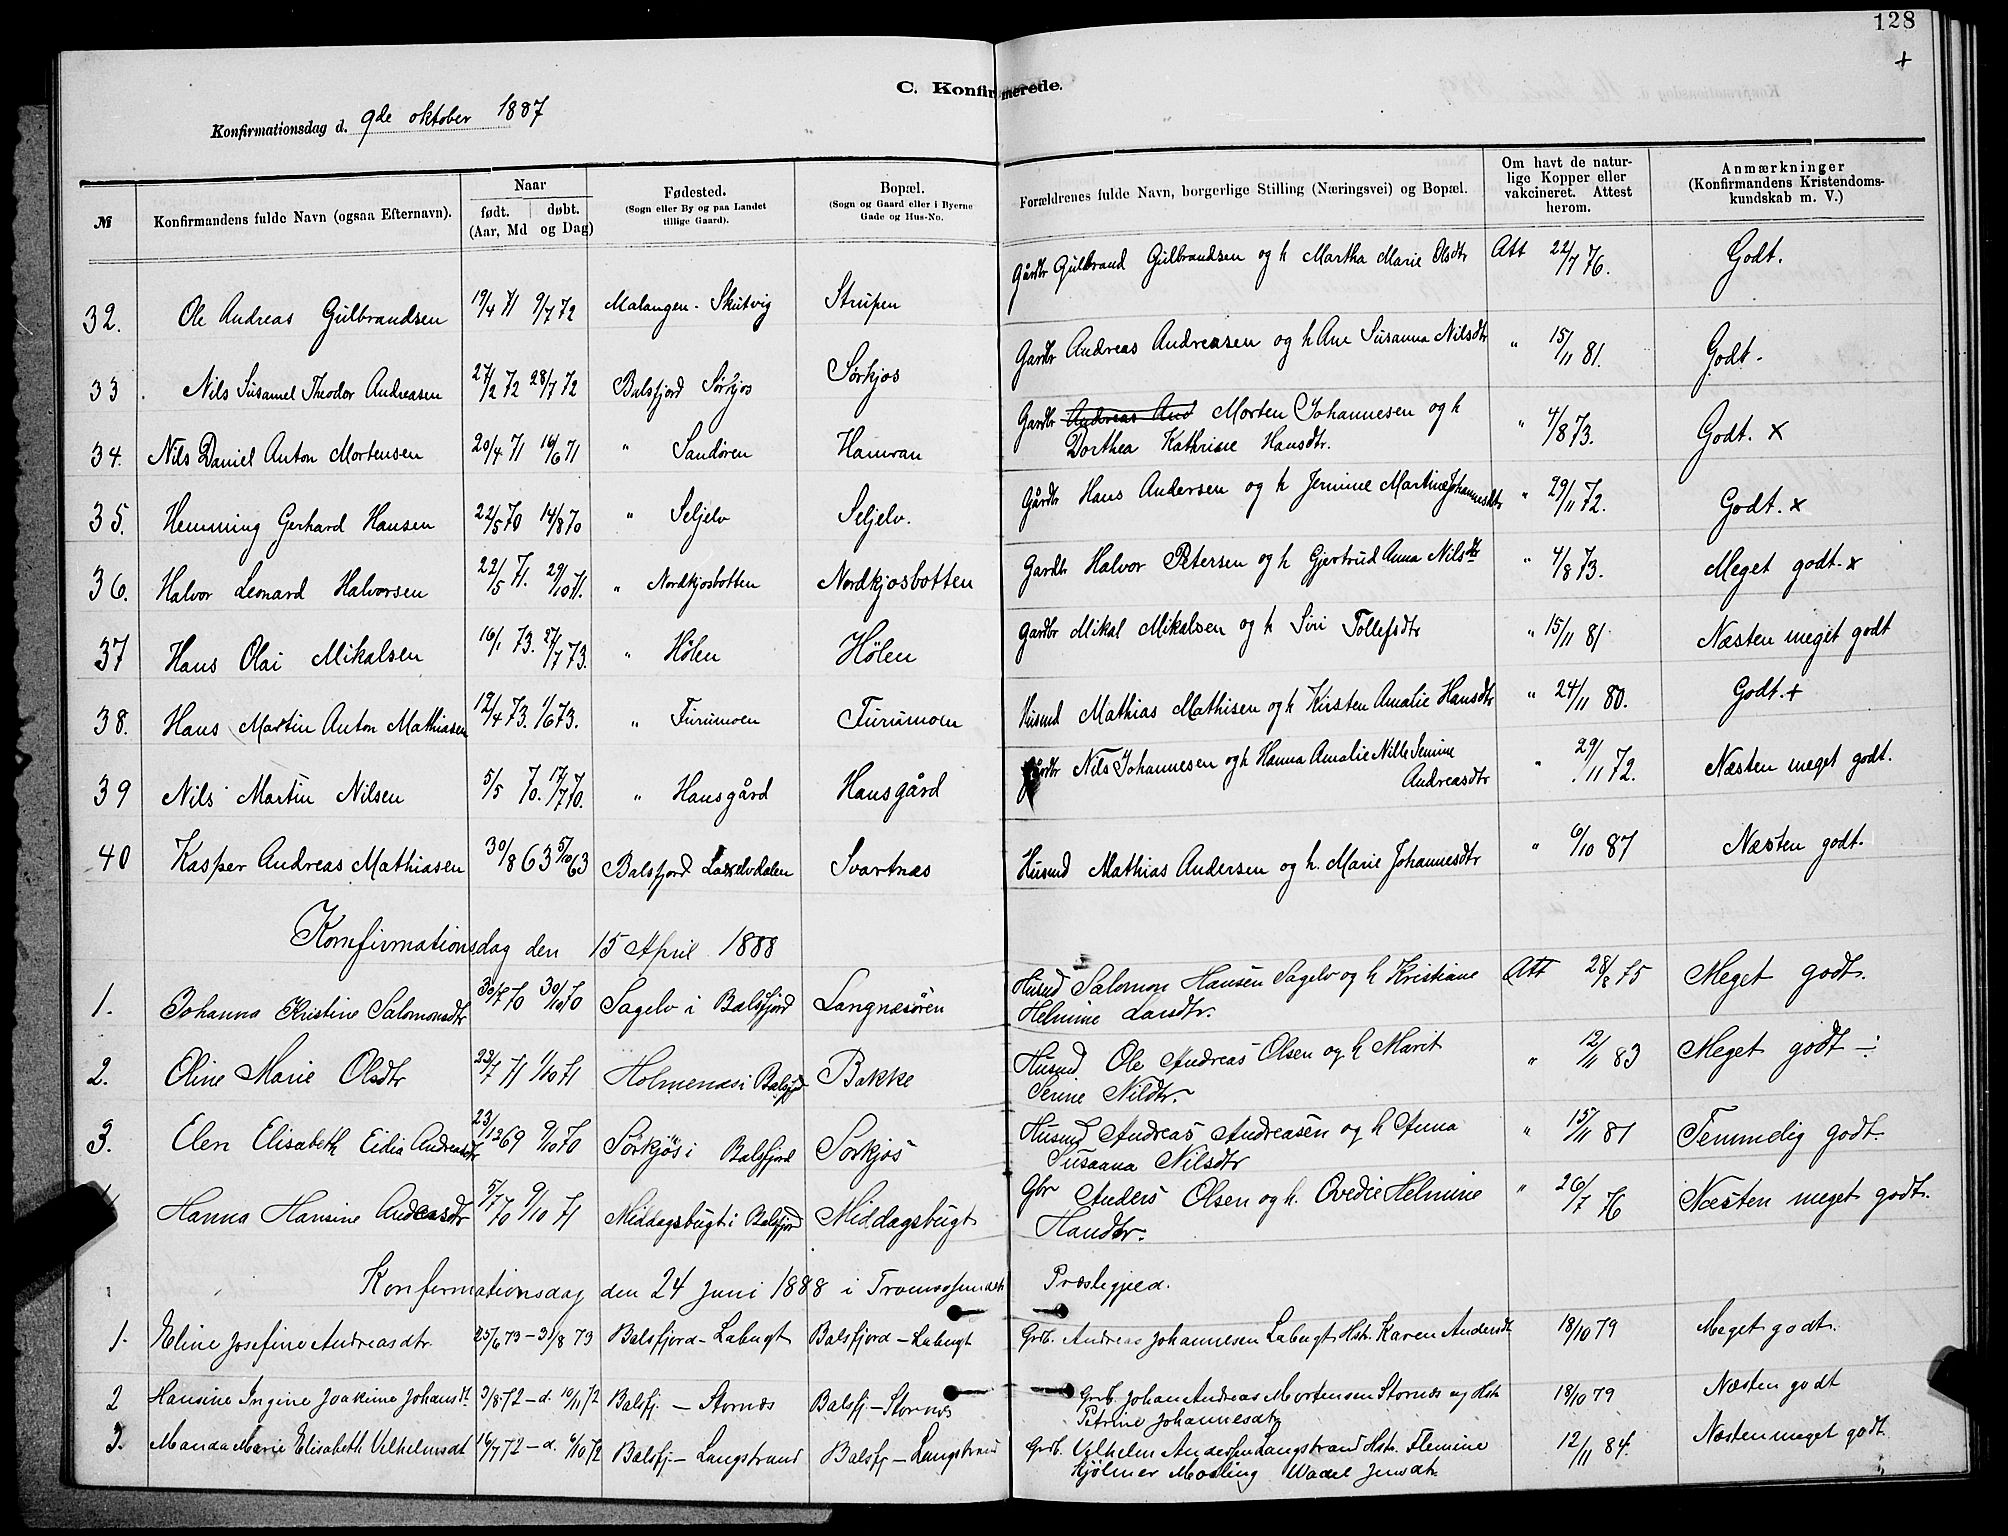 128
+
C. Konfirmerede.
Konfirmationsdag d. 9de oktober 1887
№ Konfirmandens fulde Navn (ogsaa Efternavn). Naar født. døbt. (Aar, Md og Dag) Fødested. (Sogn eller By og paa Landet tillige Gaard). Bopæl. (Sogn og Gaard eller i Byerne Gade og Hus-No. Forældrenes fulde Navn, borgerlige Stilling (Næringsvei) og Bopæl. Om havt de naturlige Kopper eller vakcineret. Attest herom. Anmærkninger (Konfirmandens Kristendomskundskab m. V.)
32. Ole Andreas Gulbrandsen 19/4 71 9/7 72 Malangen - Skutvig Strupen Gårdbr Gulbrand Gulbrandsen og h Martha Marie Olsdtr Att 22/7 76. Godt.
33. Nils Susamel Theodor Andreasen 27/2 72 28/7 72 Balsfjord Sørkjos Sørkjos Gardbr Andreas Andreasen og h Ane Susanna Nilsdtr " 15/11 81. Godt.
34. Nils Daniel Anton Mortensen 20/4 71 16/6 71 " Sandøren Hamran Gardbr Andreas And Morten Johannesen og h
Dorthea Kathrine Hansdtr. " 4/8 73. Godt. x
35. Hemming Gerhard Hansen 22/5 70 14/8 70 " Seljelv Seljelv. Gårdbr Hans Andersen og h Jemine Martine Johannesdtr " 29/11 72. Godt. x
36. Halvor Leonard Halvorsen 22/5 71. 29/10 71. " Nordkjosbotten Nordkjosbotten Gardbr Halvor Petersen og h Gjertrud Anna Nilsdtr " 4/8 73. Meget godt. x
37 Hans Olai Mikalsen 16/1 73. 27/7 73. " Hølen Hølen Gardbr Mikal Mikalsen og h Siri Tollefsdtr " 15/11 81. Næsten meget godt
38. Hans Martin Anton Mathiasen 12/4 73. 1/6 73. " Furumoen Furumoen Husmd Mathias Mathisen og h Kirsten Amalie Hansdtr " 24/11 80. Godt. +
39 Nils Martin Nilsen 5/5 70. 17/7 70. " Hansgård Hansgård Gårdbr Nils Johannesen og h Hanna Amalie Nille Semine
Andreasdtr " 29/11 72. Næsten meget godt.
40 Kasper Andreas Mathiasen 30/8 63 5/10 63 Balsfjord Laxelvdalen Svartnæs Husmd Mathias Andersen og h. Marie Johannesdtr " 6/10 87 Næsten godt.
Konfirmationsdag den 15 April 1888
1. Johanna Kristine Salomonsdtr 30/7 70 30/10 70 Sagelv i Balsfjord Langnæsøren Husmd Salomon Hansen Sagelv og h Kristiane
Helmine Larsdtr. Att 28/8 75 Meget godt.
2. Oline Marie Olsdtr 23/7 71 1/10 71 Holmenæs i Balsfjord Bakke Husmd Ole Andreas Olsen og h Marit
Serine Nildtr. " 12/11 83 Meget godt -:
3. Elen Elisabeth Eidia Andreasdtr 23/12 69 9/10 70 Sørkjos i Balsfjord Sørkjos Husmd Andreas Andreasen og h Anna
Susanna Nilsdtr " 15/11 81 Temmelig godt.
Hanna Hansine Andersdtr 5/7 70 9/10 71 Middagsbugt i Balsfjord Middagsbugt Gbr Anders Olsen og h. Ovedie Helmine
Handtr. " 26/7 76 Næsten meget godt.
Konfirmationsdag den 24 Juni 1888 i Præstegjæld.
1. Eline Josefine Andreasdtr. 25/6 73 - 31/8 73 Balsfjord - Labugt Balsfjord - Labugt Grb. Andreas Johannesen Labugt Hstr. Karen Andersdt 18/10 79 Meget godt.
2 Hansine Ingine Joakime Johansdt. 3/8 72 - d. 10/11 72 Balsfj. - Stornæs Balsfj - Stornæs Grb. Johan Andreas Mortensen Stornæs og Hstr
Petrine Johannesdtr 18/10 79 Næsten godt
3. Manda Marie Elisabeth Vilhelmsdt 16/7 72 - d. 6/10 72 Balsfj - Langstrand Balsfj - Langstrand Grb. Vilhelm Andersen Langstrand Hstr. Elemine
Hjølmer Mosling Wadel Jensdtr. 12/11 84. Næsten meget godt.